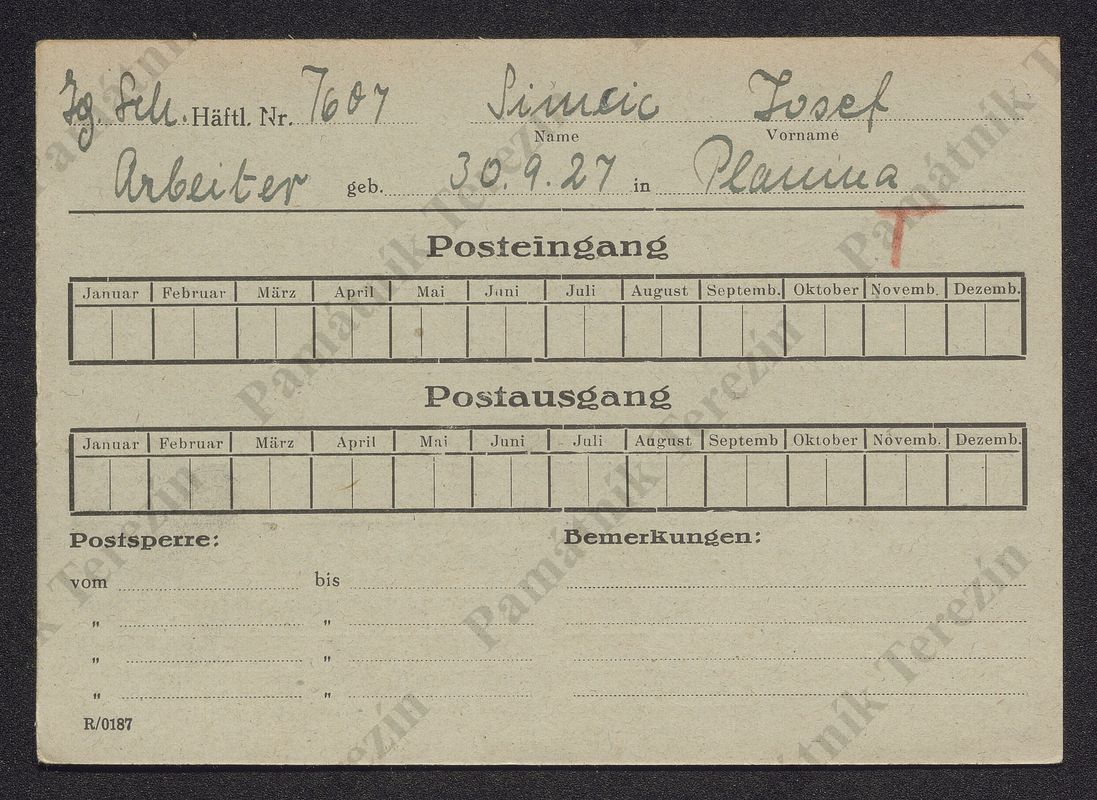 Jg. Sch. Häftl. Nr. 7607 Simcic Josef
Name Vorname
Arbeiter geb. 30.9.27 in Planina
T
Posteingang
Januar Februar März April Mai Juni Juli August Septemb. Oktober Novemb. Dezemb.
Postausgang
Januar Februar März April Mai Juni Juli August Septemb Oktober Novemb. Dezemb.
Postsperre: Bemerkungen:
vom bis
" "
" "
" "
R/0187
Památník Terezín